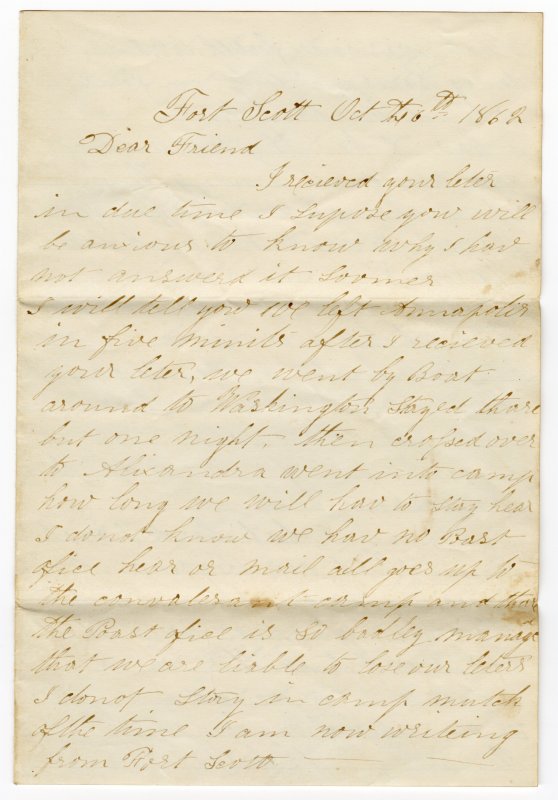 Fort Scott Oct 26th 1862
Dear Friend
I recieved your leter
in due time I supose you will
be anious to know why I hav
not answerd it soomer
I will tell you we left Annapolis
in five minits after I recieved
your leter, we went by Boat
around to Washington stayed thare
but one night. then crossed over
to Alixandra went into camp
how long we will hav to stay hear
I donot know we hav no Post
ofice hear or mail all goes up to
the convalesant camp and thare
the Poast ofice is so badley manage
that we are liable to lose our leters
I donot stay in camp mutch
of the time I am now writeing
from Fort Scott